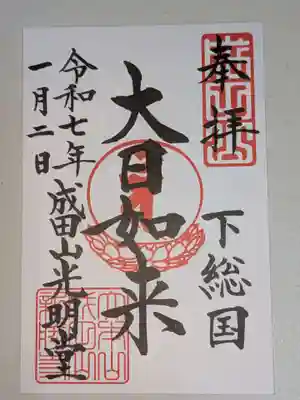 奉拝
下総国
大日如来
成田山光明堂
令和七年
一月二日